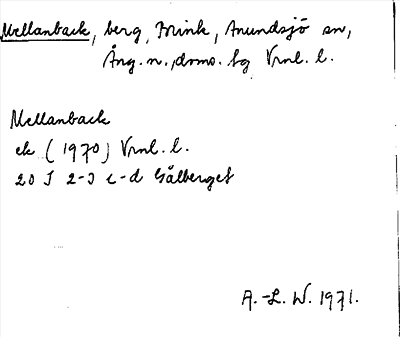 Mellanback, berg, Brink, Anundsjö sn,
Ång. n., doms. bg Vrnl. l.
Mellanback
ek (1970) Vrnl. l.
20 I 2-3 c-d Gålberget
A.-L. W. 1971.